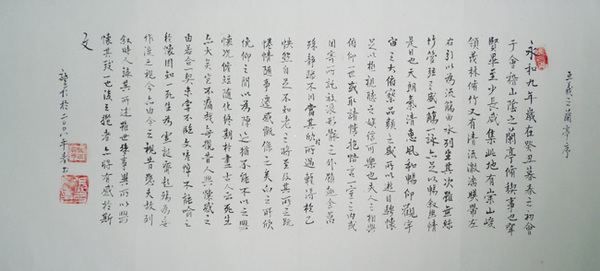 王羲之蘭亭序
永和九年歲在癸丑暮春之初會
于會稽山陰之蘭亭修禊事也羣
賢畢至少長咸集此地有崇山峻
領茂林修竹又有清流激湍映帶左
右引以為流觴曲水列坐其次雖無絲
竹管弦之盛一觴一詠亦足以暢敘幽情
是日也天朗氣清惠風和暢仰觀宇
宙之大俯察品類之盛所以遊目騁懷
足以極視聽之娛信可樂也夫人之相與
俯仰一世或取諸懷抱悟言一室之內或
因寄所託放浪形骸之外雖趣舍萬
殊靜躁不同當其欣於所遇暫得於己
快然自足不知老之將至及其所之既
惓情隨事遷感慨係之矣向之所欣
俛仰之間以為陳迹猶不能不以之興
懷況修短隨化終期於盡古人云死生
亦大矣豈不痛哉每攬昔人興感之
由若合一契未嘗不臨文嗟悼不能喻之
於懷固知一死生為虛誕齊彭殤為妄
作後之視今亦由今之視昔悲夫故列
敘時人錄其所述雖世殊事異所以興
懷其致一也後之攬者亦將有感於斯
文
於二〇〇八年春